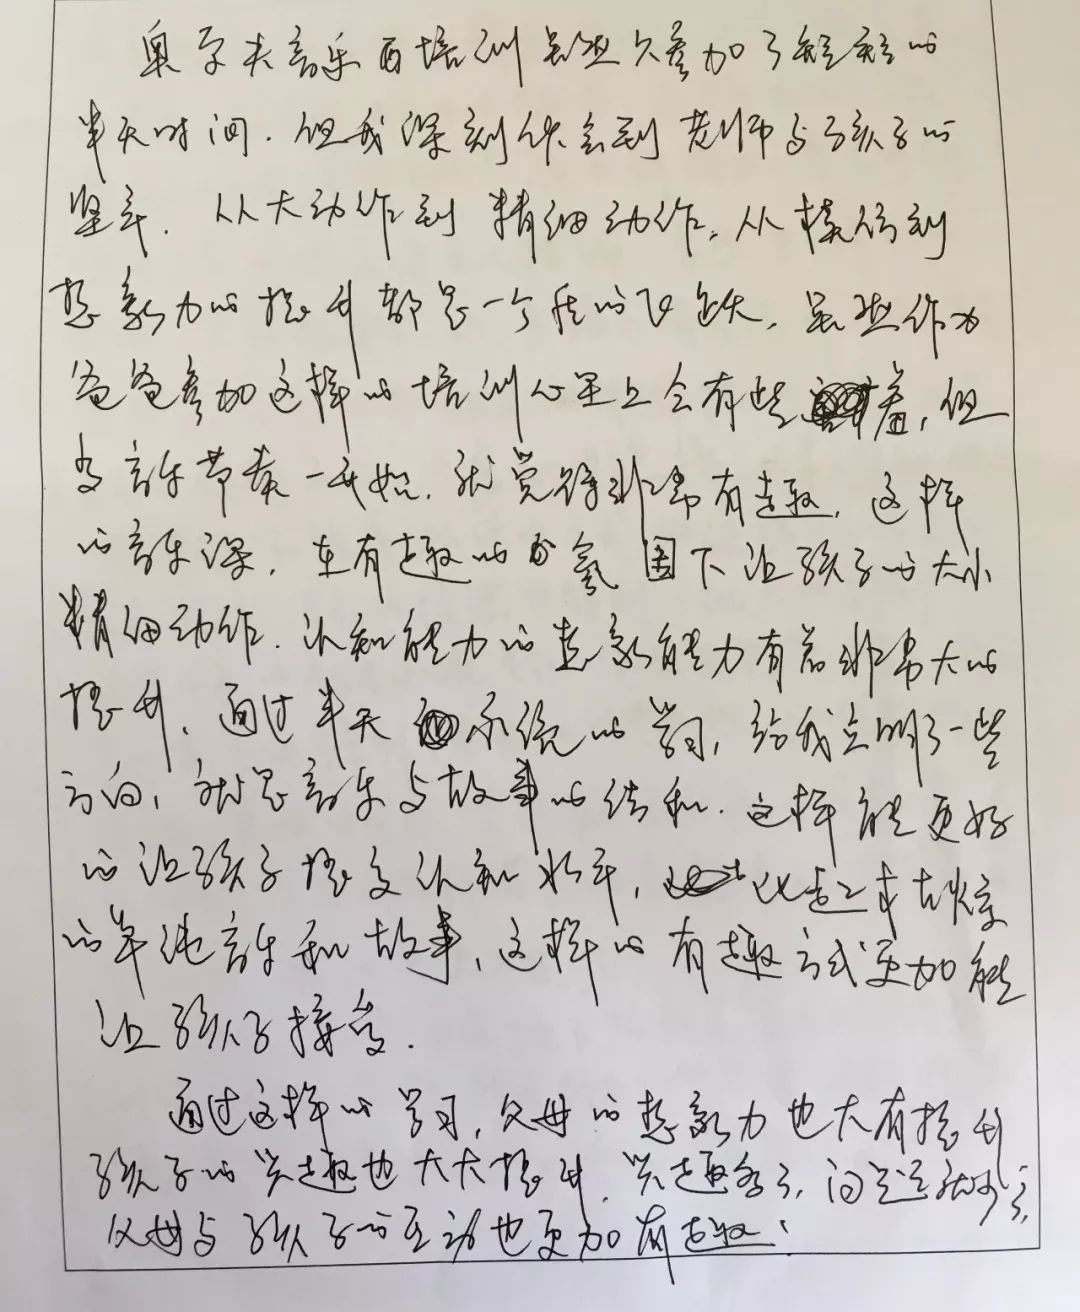 奥尔夫音乐的培训虽然只参加了短短的
半天时间.但我深刻体会到老师与孩子的
艰辛.从大动作到精细动作,从模仿到
想象力的提升都是一个质的飞跃,虽然作为
爸爸参加这样的培训心里上会有些羞,但
当音乐节奏一开始.就觉得非常有趣.这样
的音乐课,在有趣的氛围下让孩子的大小
精细动作.认知能力的想象能力有着非常大的
提升,通过半天系统的学习,给我点明了一些
方向,就是音乐与故事的结和.这样能更好
的让孩子提高认知水平,比起来枯燥
的单纯音乐和故事,这样的有趣方式更加能
让孩子接受.
通过这样的学习,父母的想象力也大有提升
孩子的兴趣也大大提升,兴趣多了,问题就少了,
父母与孩子的互动也更加有趣.